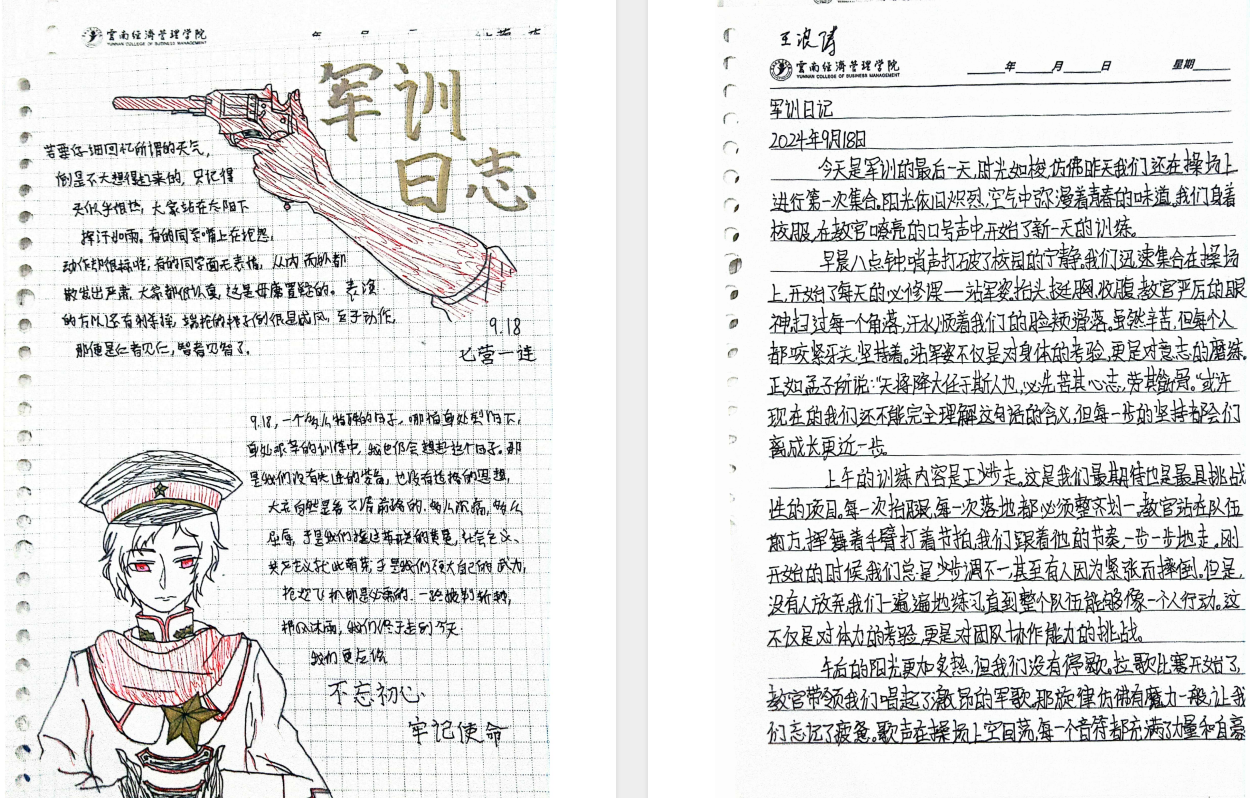 雲南经濟管理学院
YUNNAN COLLEGE OF BUSINESS MANAGEMENT
军训
日志
若要仔细回忆所谓的天气，
倒是不大想得起来的，只记得
天似乎很热，大家站在太阳下
挥汗如雨。有的同学嘴上在抱怨，
动作却很标准，有的同学面无表情，从内而外都
散发出严肃，大家都很认真，这是毋庸置疑的。表演
的方队还有刺杀操，端枪的样子倒很是威风，至于动作，
那便是仁者见仁，智者见智了。
9.18
七营一连
9.18，一个多么特殊的日子，哪怕身处烈日下，
身处艰辛的训练中，我也仍会想起这个日子。那
是我们没有先进的装备，也没有先进的思想，
大志自然是看不清前路的，多么沉痛，多么
屈辱，于是我们
社会主义、
共产主义在此萌芽，于是我们强大自己的武力，
枪炮飞机都是必需的，一路披荆斩棘，
栉风沐雨，我们终于走到今天
我们更应该
不忘初心
牢记使命
王浪涛
雲南经濟管理学院 年 月 日 星期
YUNNAN COLLEGE OF BUSINESS MANAGEMENT
军训日记
2024年9月18日
今天是军训的最后一天，时光如梭，仿佛昨天我们还在操场上
进行第一次集合。阳光依旧炽烈，空气中弥漫着青春的味道，我们身着
校服，在教官嘹亮的口号声中，开始了新一天的训练。
早晨八点钟，哨声打破了校园的宁静，我们迅速集合在操场
上，开始了每天的必修课——站军姿，抬头，挺胸，收腹，教官严厉的眼
神扫过每一个角落，汗水顺着我们的脸颊滑落，虽然辛苦，但每个人
都咬紧牙关，坚持着。站军姿不仅是对身体的考验，更是对意志的磨练。
正如孟子所说：“天将降大任于斯人也，必先苦其心志，劳其筋骨。”或许
现在的我们还不能完全理解这句话的含义，但每一步的坚持都会们
离成长更近一步。
上午的训练内容是正步走。这是我们最期待也是最具挑战
性的项目。每一次抬腿，每一次落地都必须整齐划一，教官站在队伍
前方，挥舞着手臂打着节拍，我们跟着他的节奏，一步一步地走。刚
开始的时候，我们总是步调不一，甚至有人因为紧张而摔倒。但是，
没有人放弃，我们一遍遍地练习，直到整个队伍能够像一个人行动。这
不仅是对体力的考验，更是对团队协作能力的挑战。
午后的阳光更加炙热，但我们没有停歇。拉歌比赛开始了，
教官带领我们唱起了激昂的军歌。那旋律仿佛有魔力一般，让我
们忘记了疲惫。歌声在操场上空回荡，每一个音符都充满了力量和自豪